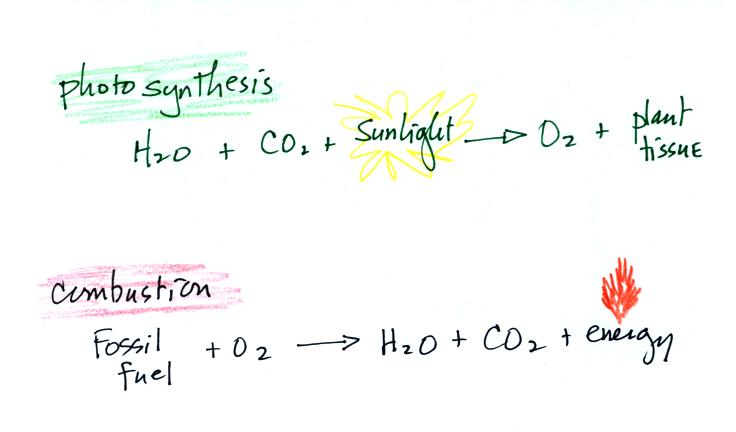 photosynthesis
H2O + CO2 + Sunlight → O2 + plant tissue
combustion
Fossil fuel + O2 → H2O + CO2 + energy